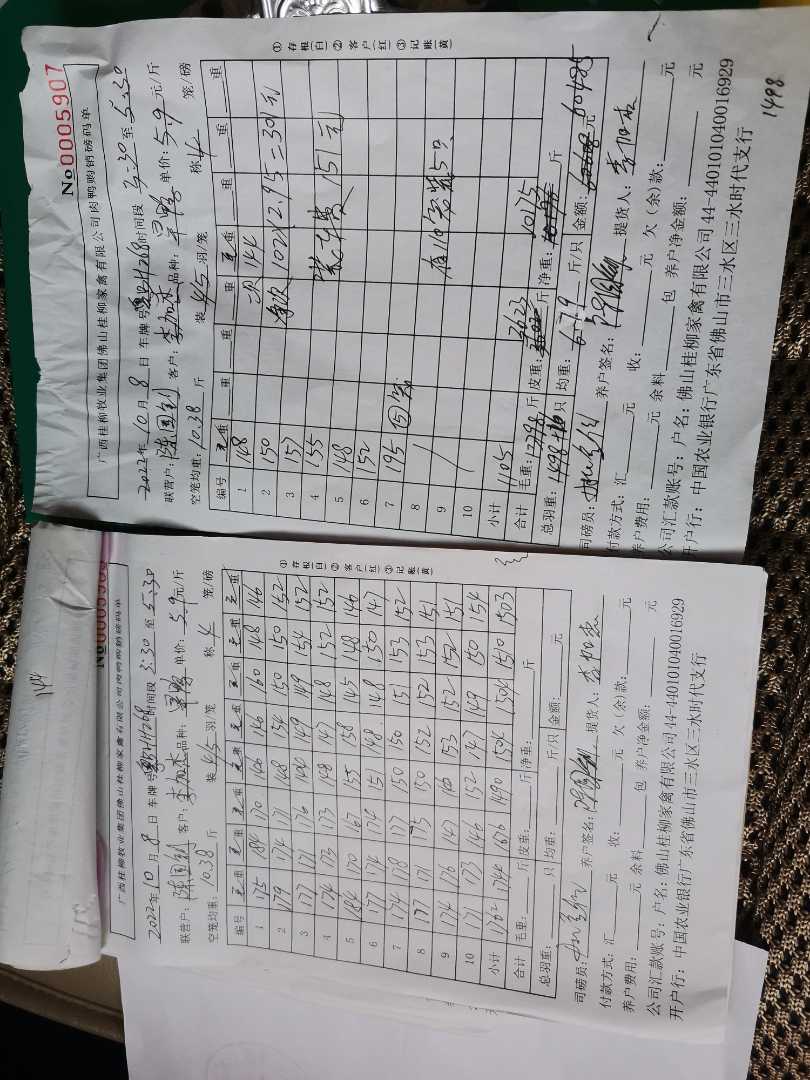 №0005907
广西桂柳牧业集团佛山桂柳家禽有限公司肉鸭购销磅码单
2022年10月8日 车牌号 H268 时间段3:30至5:30
联营户: 陈国钊 客户: 李加杰 品种: 单价: 5.9元/斤
空笼均重: 10.38斤 装45羽/笼 称4笼/磅
编号 毛重 重 重 毛重 重 重 重
1 148 一次 144
2 150 每次 102×2.95=301元
3 157
4 155 装车费 151元
5 148
6 152
7 195 ⑤只
8
9
10
小计 1105
合计 毛重: 13798斤 皮重: 3623斤 净重: 10175斤
总羽重: 1498只 均重: 6.79斤/只 金额: 60485元
司磅员: 养户签名: 陈国钊 提货人: 李加杰
付款方式: 汇 元 收: 元 欠(余)款: 元
养户费用: 元 余料 包 养户净金额: 元
公司汇款账号: 户名: 佛山桂柳家禽有限公司44-440101040016929
开户行: 中国农业银行广东省佛山市三水区三水时代支行
1498
①存根(白) ②客户(红) ③记账(黄)
144
广西桂柳牧业集团佛山桂柳家禽有限公司肉鸭购销磅码单
2022年10月8日 车牌号 H268 时间段3:30至5:30
联营户: 陈国钊 客户: 李加杰 品种: 单价: 5.9元/斤
空笼均重: 10.38斤 装45羽/笼 称4笼/磅
编号 毛重 毛重 毛重 毛重 毛重 毛重 毛重
1 175 184 170 146 146 160 148 146
2 179 174 171 148 154 150 150 152
3 177 171 176 144 149 149 154 152
4 174 173 173 148 147 148 152 152
5 184 170 167 155 158 145 148 146
6 177 174 174 151 148 148 150 147
7 174 178 177 150 150 151 153 152
8 177 171 175 150 152 152 153 151
9 174 176 147 153 152 152 151
10 171 173 146 152 147 149 150 154
小计 1762 1744 1676 1490 1504 1504 1510 1503
合计 毛重: 斤 皮重: 斤 净重: 斤
总羽重: 只 均重: 斤/只 金额: 元
司磅员: 养户签名: 陈国钊 提货人: 李加杰
付款方式: 汇 元 收: 元 欠(余)款: 元
养户费用: 元 余料 包 养户净金额: 元
公司汇款账号: 户名: 佛山桂柳家禽有限公司44-440101040016929
开户行: 中国农业银行广东省佛山市三水区三水时代支行
①存根(白) ②客户(红) ③记账(黄)